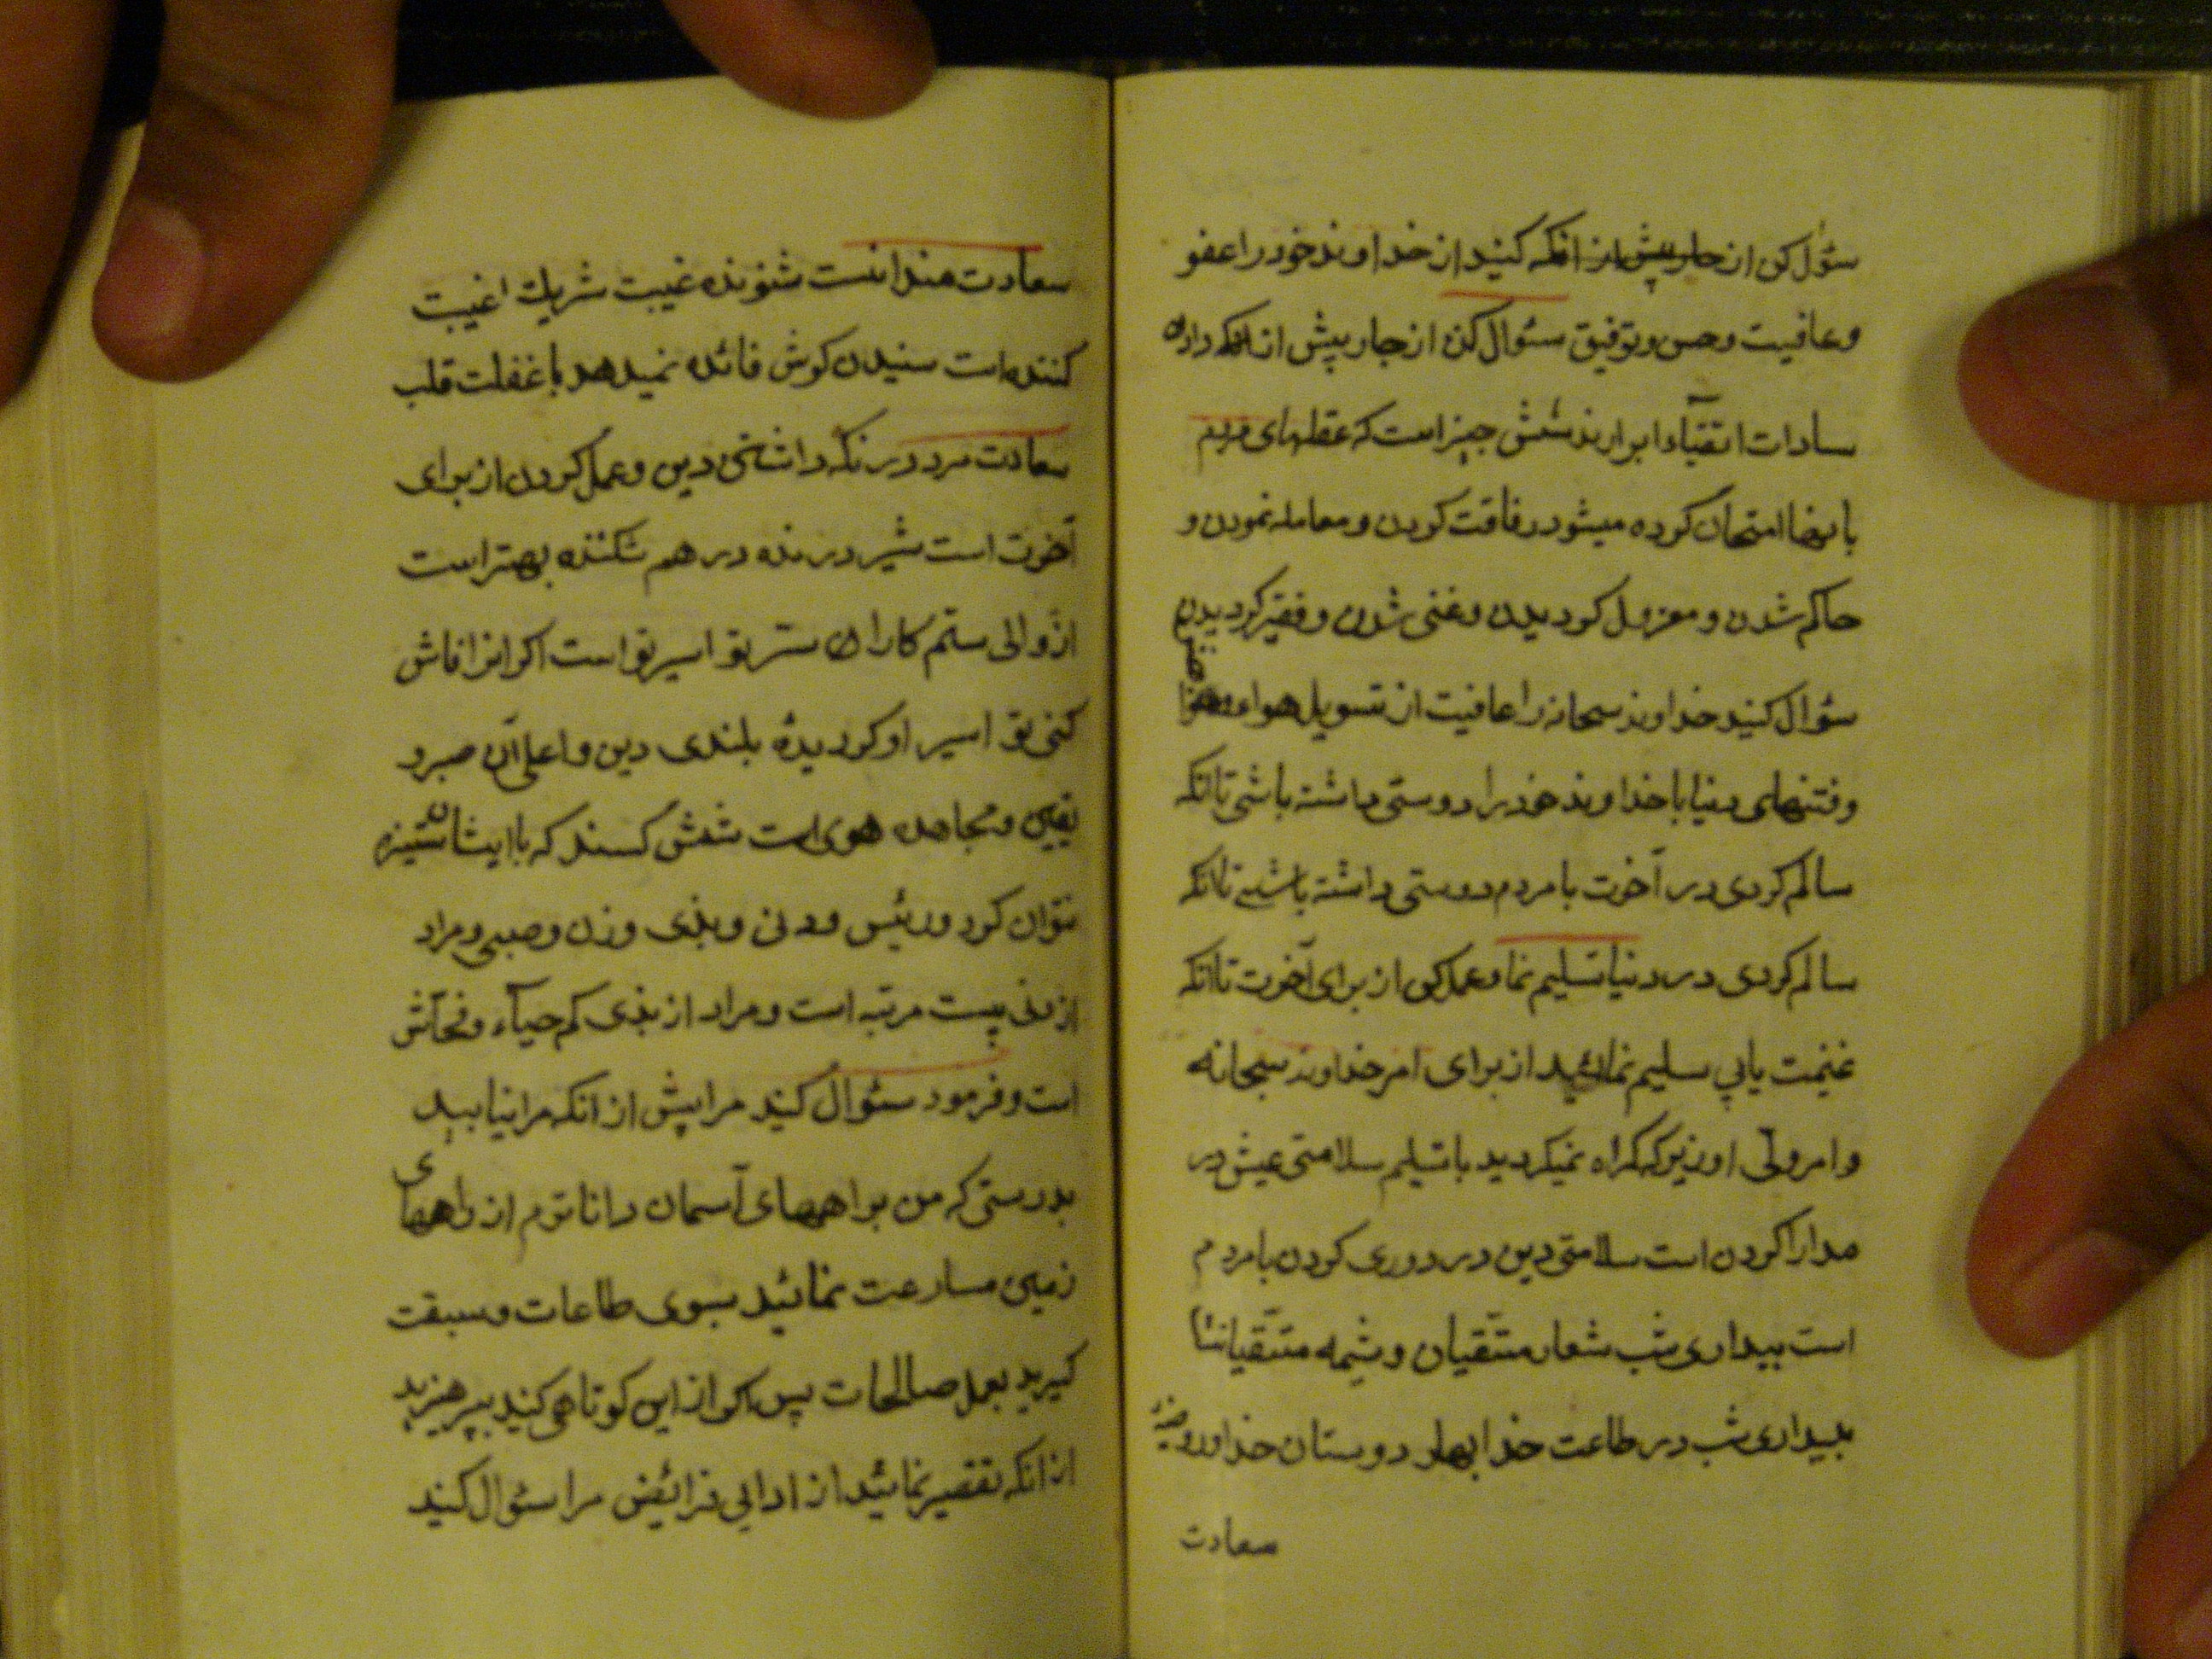 سئوال کن از جار پیش از انکه کنید از خداوند خود را عفو
وعافیت وحسن وتوفیق سئوال کن از جار پیش از انکه داره
سادات اتقیآء ابرارند شش چیز است که عقلهای مردم
باینها امتحان کرده میشود رفاقت کردن ومعامله نمودن و
حاکم شدن و معزول کردیدن وغنی شدن و فقیر کردیدن
سئوال کنید خداوند سبحانه را عافیت از تسویل هواء
وفتنهای دنیا با خداوند خود را دوستی داشته باشی تا انکه
سالم کردی در آخرت با مردم دوستی داشته باشی تا انکه
سالم کردی در دنیا تسلیم نما وعمل کن از برای آخرت تا انکه
غنیمت یابی تسلیم نمائید از برای امر خداوند سبحانه
وامر ولی او زیرکه کمراه نمیکردید با تسلیم سلامتی عیش در
مدارا کردن است سلامتی دین در دوری کردن با مردم
است بیداری شب شعار متّقیان وشیمه
بیداری شب در طاعت خدا بهار دوستان خدا و روضه
سعادت
سعادتمندانست شنونده غیبت شریك غیبت
کننده است شنیدن کوش فائده نمیدهد با غفلت قلب
سعادت مرد در نکه داشتن دین وعمل کردن از برای
آخرت است شیر درنده در هم شکننده بهتر است
از والی ستم کاران سرّ تو اسیر تو است اکر انرا فاش
کنی تو اسیر او کردیدهٔ بلندی دین و اعلی آن صبر و
یقین ومجاهده هوی است شش کسند که با ایشان ستیزه
نتوان کرد ورئیس ودنی وبذی وزن وصبی ومراد
از دنی پست مرتبه است ومراد از بذی کم حیآء وفحّاش
است وفرمود سئوال کنید مرا پیش از انکه مرا نیابید
بدرستی که من براههای آسمان داناترم از راههای
زمین مسارعت نمائید بسوی طاعات وسبقت
کیرید بعمل صالحات پس اکر از این کوتاهی کنید بپرهیزید
از انکه تقصیر نمائید از ادایی فرائض مرا سئوال کنید